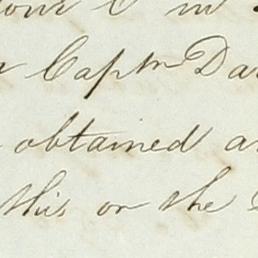 in
Captn Da
obtained a
this or the